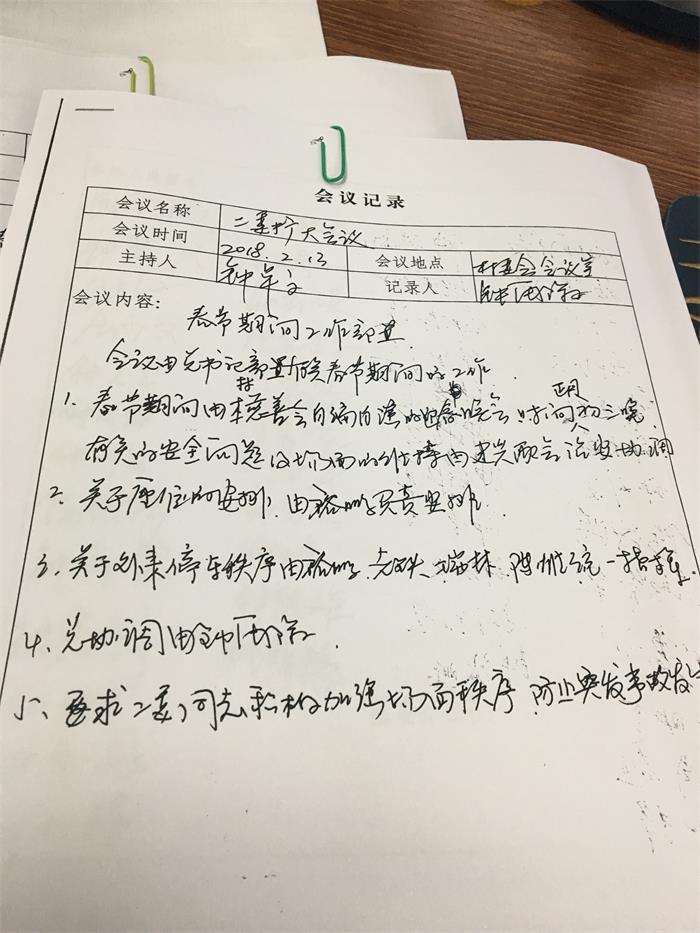 会议记录
会议名称 二委扩大会议
会议时间 2018.2.13 会议地点 村委会会议室
主持人 钟 记录人 钟
会议内容：
春节期间工作部署
会议由总书记部署有关春节期间的工作
1、春节期间由本村慈善会自编自演的 晚会 时间 正月初三晚
有关的安全问题及场面的维持由 联合治安协调
2、关于座位的安排，由 负责安排
3、关于外来停车秩序由 统一指挥.
4、总协调由钟
5、要求二委同志积极加强场面秩序 防止突发事故发